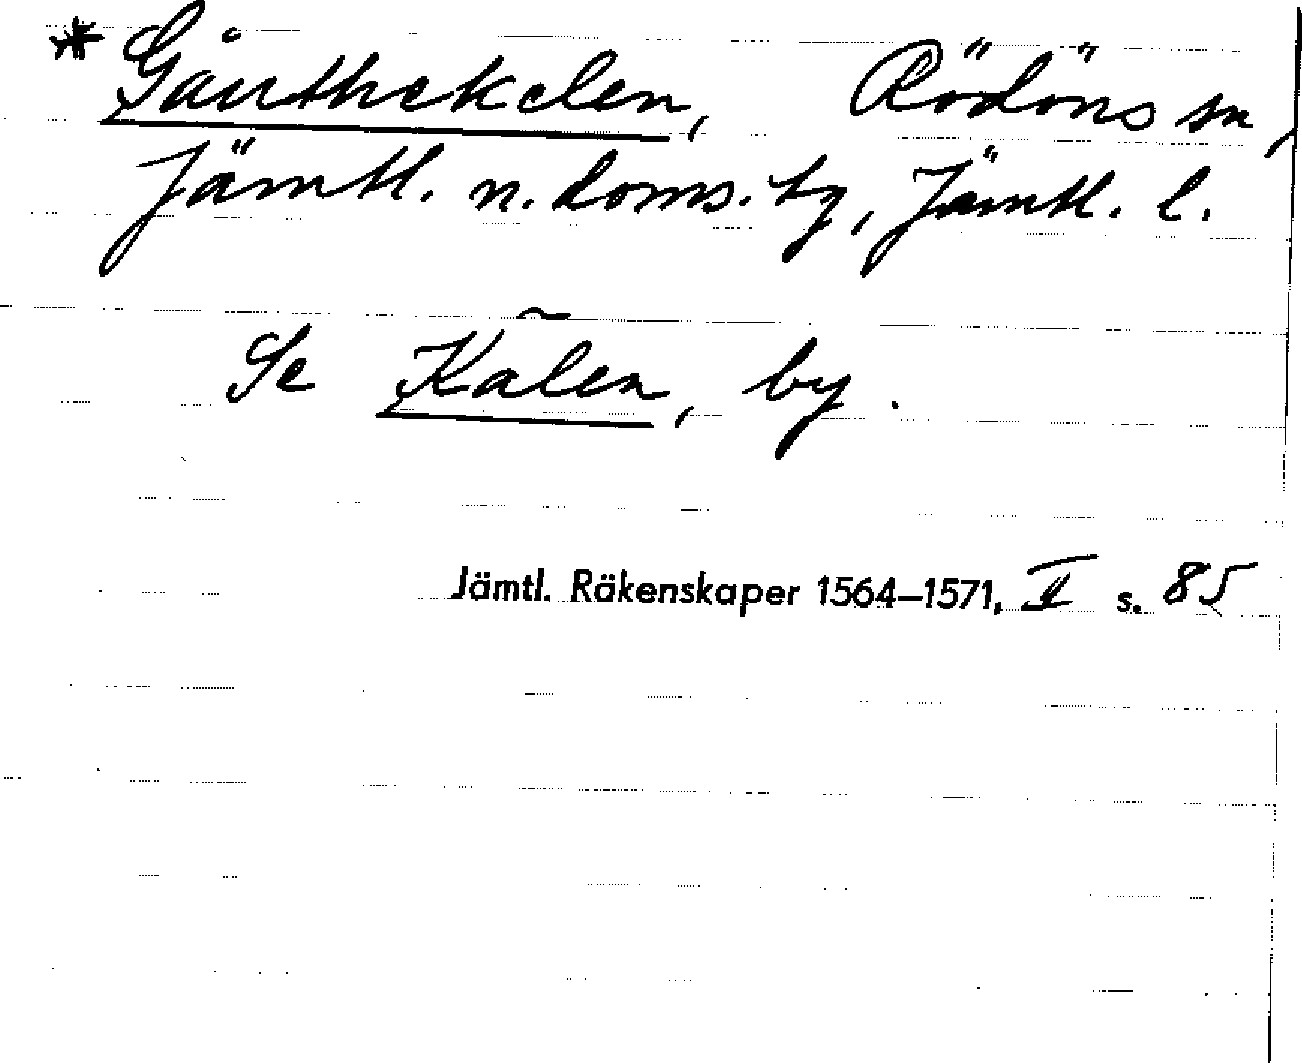 * Gåuthekelen, Rödöns sn,
Jämtl. n. doms. hg, Jämtl. l.
Se Kälen, by.
Jämtl. Räkenskaper 1564–1571, II s. 85